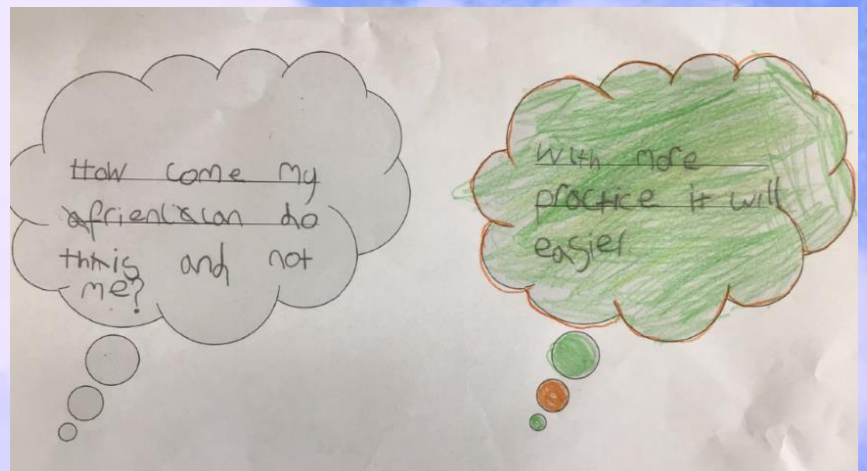 How come my
friends can do
this and not
me?
With more
practice it will
easier